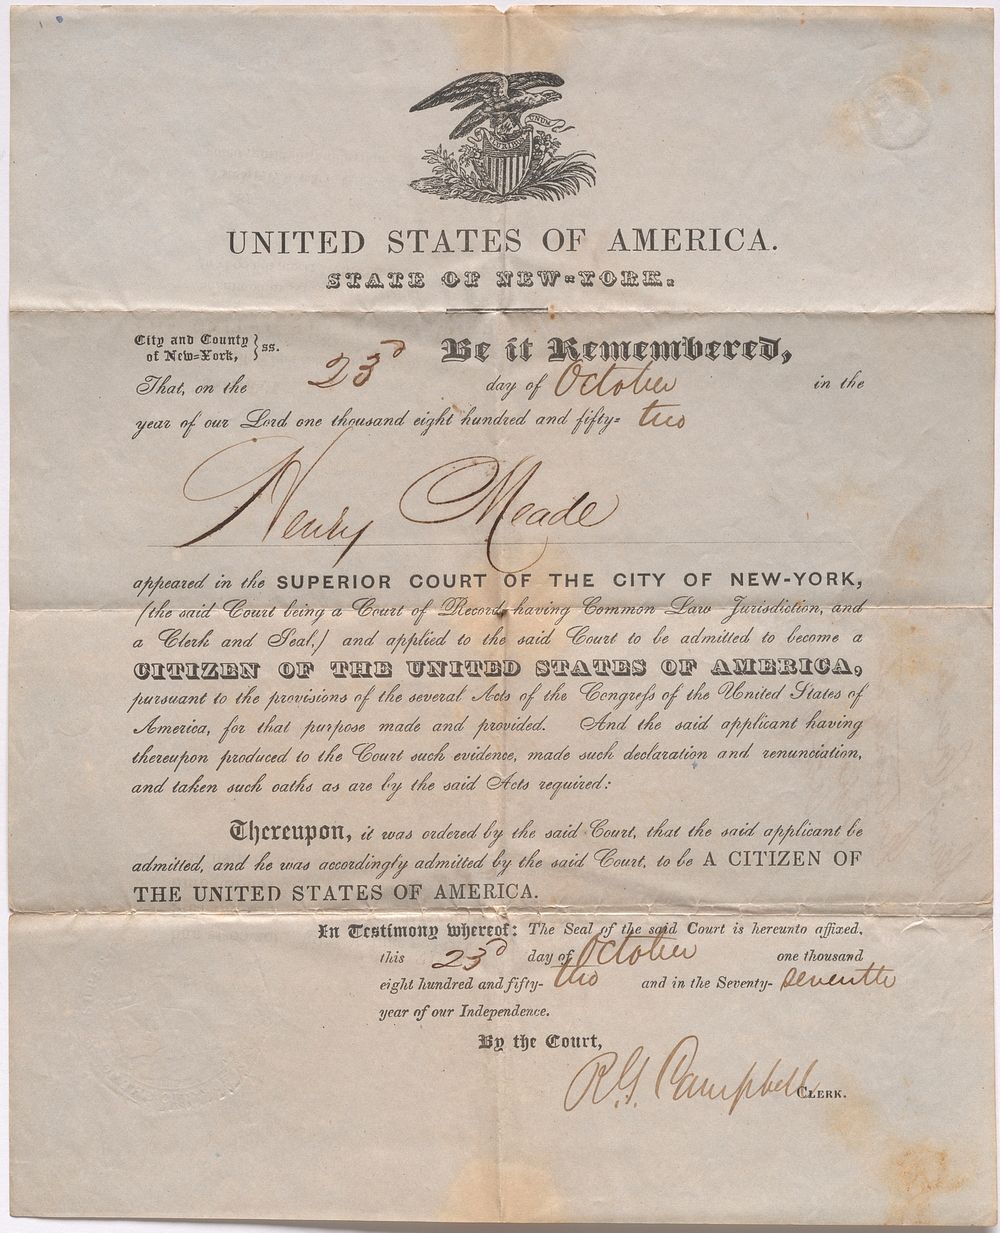 UNITED STATES OF AMERICA.
STATE OF NEW-YORK.
City and County
of New-York, } ss.
Be it Remembered,
That, on the 23d day of October in the
year of our Lord one thousand eight hundred and fifty- two
Henry Meade
appeared in the SUPERIOR COURT OF THE CITY OF NEW-YORK,
(the said Court being a Court of Record, having Common Law Jurisdiction, and
a Clerk and Seal,) and applied to the said Court to be admitted to become a
CITIZEN OF THE UNITED STATES OF AMERICA,
pursuant to the provisions of the several Acts of the Congreſs of the United States of
America, for that purpose made and provided. And the said applicant having
thereupon produced to the Court such evidence, made such declaration and renunciation,
and taken such oaths as are by the said Acts required:
Thereupon, it was ordered by the said Court, that the said applicant be
admitted, and he was accordingly admitted by the said Court, to be A CITIZEN OF
THE UNITED STATES OF AMERICA.
In Testimony whereof: The Seal of the said Court is hereunto affixed,
this 23d day of October one thousand
eight hundred and fifty- two and in the Seventy- seventh
year of our Independence.
By the Court,
R. G. Campbell CLERK.